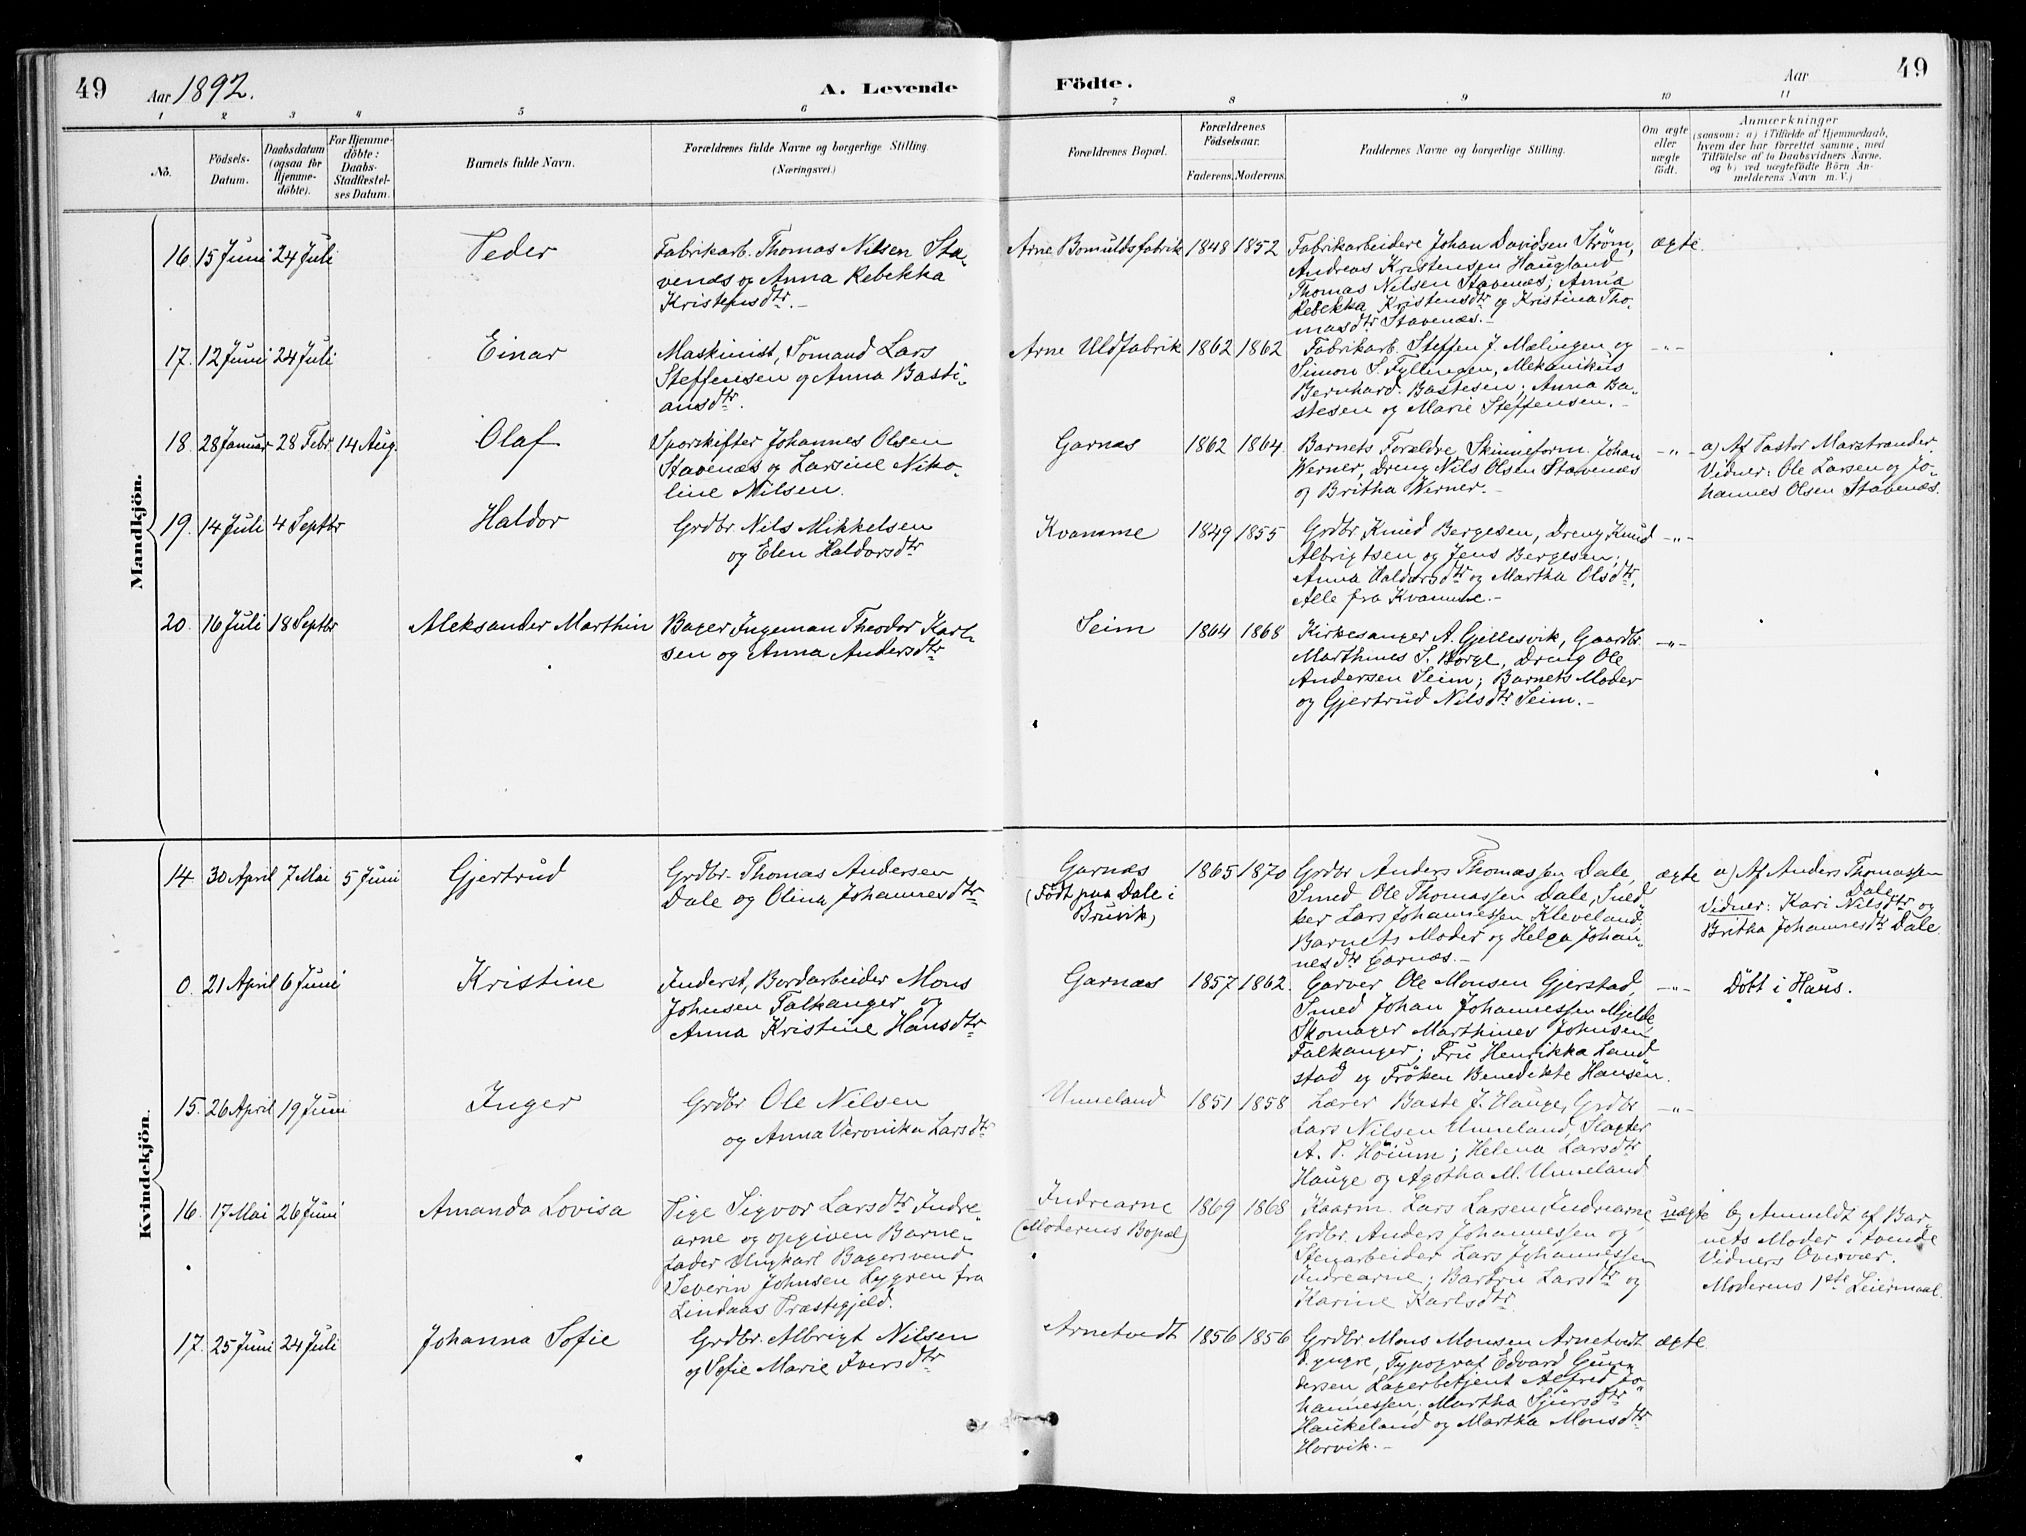 49 Aar 1892. A. Levende Födte. Aar 49
1 2 3 4 5 6 7 8 9 10 11
No.
Födsels-
Datum.
Daabsdatum
(ogsaa for
Hjemme-
döbte).
For Hjemme-
döbte:
Daabs-
Stadfæstel-
ses Datum.
Barnets fulde Navn.
Forældrenes fulde Navne og borgerlige Stilling.
(Næringsvei.)
Forældrenes Bopæl.
Forældrenes
Födselsaar.
Faderens. Moderens.
Faddernes Navne og borgerlige Stilling.
Om ægte
eller
uægte
födt.
Anmærkninger
(saasom: a) i Tilfælde af Hjemmedaab,
hvem der har forrettet samme, med
Tilföielse af to Daabsvidners Navne,
og b) ved uægtefödte Börn An-
melderens Navn m. V.)
Mandkjön.
16 15 Juni 24 Juli Peder
Fabrikarb. Thomas Nilsen Sta-
venæs og Anna Rebekka
Kristensdtr.-
Arne Bomuldsfabrik 1848 1852
Fabrikarbeidere Johan Davidsen Strøm,
Andreas Kristensen Haugland,
Thomas Nilsen Stavenæs; Anna
Rebekka Kristensdtr og Kristina Tho-
masdtr Stavenæs.-
ægte.
17. 12 Juni 24 Juli Einar
Maskinist, Sömand Lars
Steffensen og Anna Basti-
ansdtr.
Arne Uldfabrik 1862 1862
Fabrikarb. Steffen J. Mælingen og
Simon S. Fyllingen, Mekanikus
Bernhard Bastesen; Anna Ba-
stesen og Marie Steffensen.-
-"-
18. 28 Januar 28 Febr. 14 Aug. Olaf
Sporskifter Johannes Olsen
Stavenæs og Larsine Niko-
line Nilsen.
Garnæs 1862 1864
Barnets Forældre, Skinneform. Johan
Werner, Dreng Nils Olsen Stavenæs
og Britha Werner.-
-"-
a) Af Pastor Marstrander.
Vidner: Ole Larsen og Jo-
hannes Olsen Stavenæs.
19. 14 Juli 4 Septbr Haldor
Grdbr. Nils Mikkelsen
og Elen Haldorsdtr
Kvamme 1849 1855
Grdbr. Knud Bergesen, Dreng Knud
Albrigtsen og Jens Bergesen;
Anna Haldorsdtr og Martha Olsdtr,
Alle fra Kvamme.-
-"-
20. 16 Juli 18 Septbr Aleksander Marthin
Bager Ingeman Theodor Karl-
sen og Anna Andersdtr
Seim 1864 1868
Kirkesanger A. Gjellesvik, Gaardbr.
Marthines S. Borge, Dreng Ole
Andersen Seim; Barnets Moder
og Gjertrud Nilsdtr Seim.-
-"-
Kvindekjön.
14. 30 April 7 Mai 5 Juni Gjertrud
Grdbr. Thomas Andersen
Dale og Olina Johannesdtr
Garnæs
(Født paa Dale i
Bruvik)
1865 1870
Grdbr Anders Thomassen Dale,
Smed Ole Thomassen Dale, Sned-
ker Lars Johannessen Kleveland,
Barnets Moder og Helga Johan-
nesdtr Garnæs.-
ægte
a) Af Anders Thomassen
Dale
Vidner: Kari Nilsdtr og
Britha Johannesdtr Dale.
0. 21 April 6 Juni Kristine
Inderst, Bordarbeider Mons
Johnsen Falkanger og
Anna Kristine Hansdtr
Garnæs 1857 1862.
Garver Ole Monsen Gjerstad,
Smed Johan Johannessen Mjelde,
Skomager Marthines Johnsen
Falkanger; Fru Henrikka Land-
stad og Frøken Benedikte Hansen.
-"-
Döbt i Haus.
15. 26 April 19 Juni Inger
Grdbr Ole Nilsen
og Anna Veronika Larsdtr
Unneland 1851 1858
Lærer Baste J. Hauge, Grdbr
Lars Nilsen Unneland, Slagter
A. P. Höium; Helena Larsdtr
Hauge og Agotha M. Unneland
-"-
16. 17 Mai 26 Juni Amanda Lovisa
Pige Sigvor Larsdtr Indre-
arne og opgiven Barne-
fader Ungkarl Bagersvend
Severin Johnsen Lygren fra
Lindaas Præstegjeld.
Indrearne
(Moderens Bopæl)
1869 1868
Kaarm. Lars Larsen Indrearne
Grdbr. Anders Johannessen og
Stenarbeider Lars Johannessen
Indrearne; Barbru Larsdtr og
Karine Karlsdtr.
uægte
b) Anmeldt af Bar-
nets Moder i tvende
Vidners Overvær.
Moderens 1ste Leiermaal.
17. 25 Juni 24 Juli Johanna Sofie
Grdbr. Albrigt Nilsen
og Sofie Marie Iversdtr
Arnetvedt 1856 1856
Grdbr Mons Monsen Arnetvedt
d. yngre, Typograf Edvard
Lagerbetjent Alfred Jo-
hannessen, Martha Sjursdtr
Haukeland og Martha Monsdtr
Horvik.-
ægte.